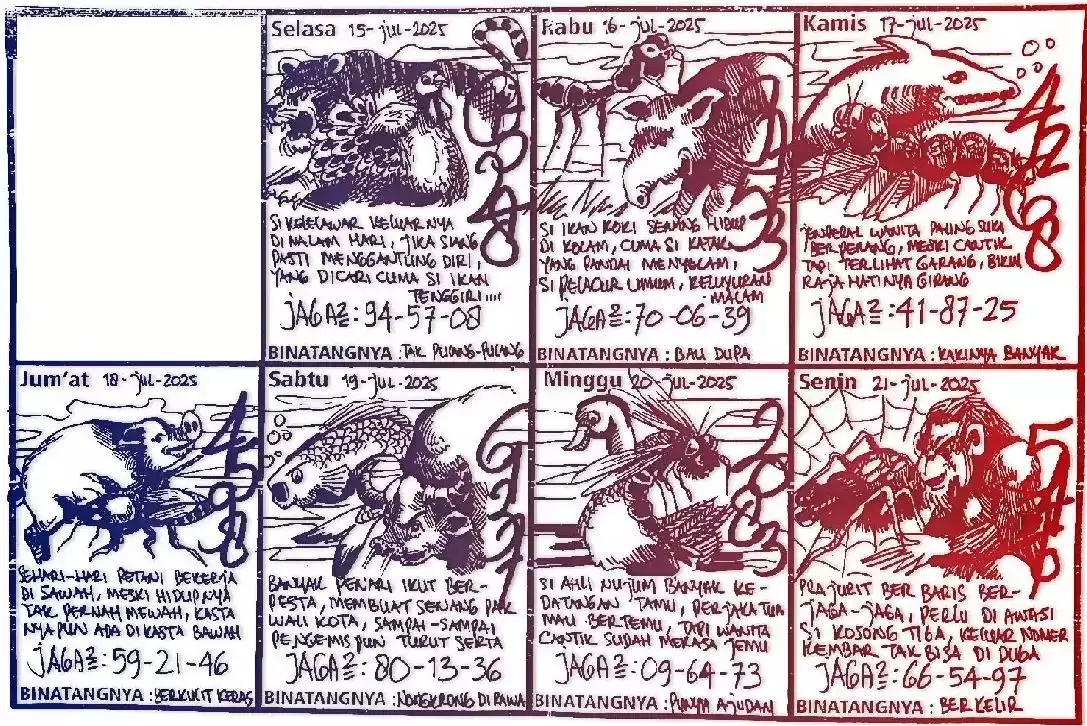 Selasa 15-Jul-2025
SI KELELAWAR KELUARNYA
DI MALAM HARI, JIKA SIANG
PASTI MENGGANTUNG DIRI,
YANG DICARI CUMA SI IKAN
TENGGIRI....
JAGA2=: 94-57-08
BINATANGNYA : TAK PULANG-PULANG
Rabu 16-Jul-2025
SI IKAN KOKI SENANG HIDUP
DI KOLAM, CUMA SI KATAK
YANG PANDAI MENYELAM,
SI PELACUR UMUM, KELUYURAN
MALAM
JAGA2=: 70-06-39
BINATANGNYA : BAU DUPA
Kamis 17-Jul-2025
4268
JENDERAL WANITA PALING SUKA
BERPERANG, MESKI CANTIK
TAPI TERLIHAT GARANG, BIKIN
RAJA HATINYA GIRANG
JAGA2=: 41-87-25
BINATANGNYA : KAKINYA BANYAK
Jum'at 18-Jul-2025
4598
SEHARI-HARI PETANI BEKERJA
DI SAWAH, MESKI HIDUPNYA
TAK PERNAH MEWAH, KASTA
NYA PUN ADA DI KASTA BAWAH
JAGA2=: 59-21-46
BINATANGNYA : BERKULIT KERAS
Sabtu 19-Jul-2025
BANYAK PENARI IKUT BER-
PESTA, MEMBUAT SENANG PAK
WALI KOTA, SAMPAI-SAMPAI
PENGEMIS PUN TURUT SERTA
JAGA2=: 80-13-36
BINATANGNYA : NONGKRONG DI RAWA
Minggu 20-Jul-2025
SI AHLI NUJUM BANYAK KE-
DATANGAN TAMU, PERJAKA TUA
MAU BERTEMU, TAPI WANITA
CANTIK SUDAH MERASA JEMU
JAGA2=: 09-64-73
BINATANGNYA : PUNYA AJUDAN
Senin 21-Jul-2025
PRAJURIT BER BARIS BER-
JAGA-JAGA, PERLU DI AWASI
SI KOSONG TIGA, KELUAR NOMER
KEMBAR TAK BISA DI DUGA
JAGA2=: 66-54-97
BINATANGNYA : BERKELIR